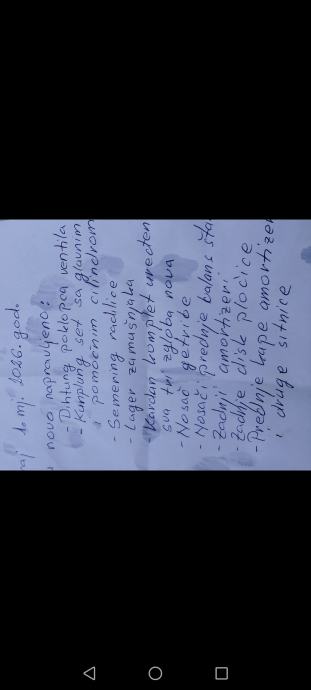 10 mj. 2026. god.
novo napravljeno:
- Dihtung poklopca ventila
- Kuplung set sa glavnim
i pomoćnim cilindrom
- Semering radilice
- Lager zamašnjaka
- Kardan komplet uređen
sva tri zgloba nova
- Nosač getribe
- Nosači prednje balans šta
- Zadnji amortizeri
- Zadnje disk pločice
- Prednje kape amortizer
i druge sitnice